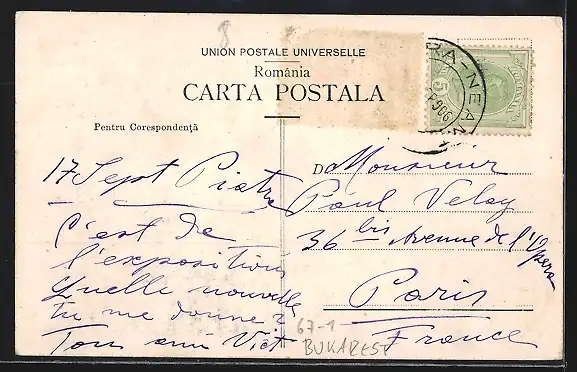 UNION POSTALE UNIVERSELLE
România
CARTA POSTALA
Pentru Corespondență
17 Sept Piatra
C'est de
l'exposition
Quelle nouvelle
tu me donne ?
Ton ami Vict
D Monsieur
Paul Velay
36 bis Avenue de l'Opera
Paris
France
67-1
BUKAREST
5
RA-NEAM
906